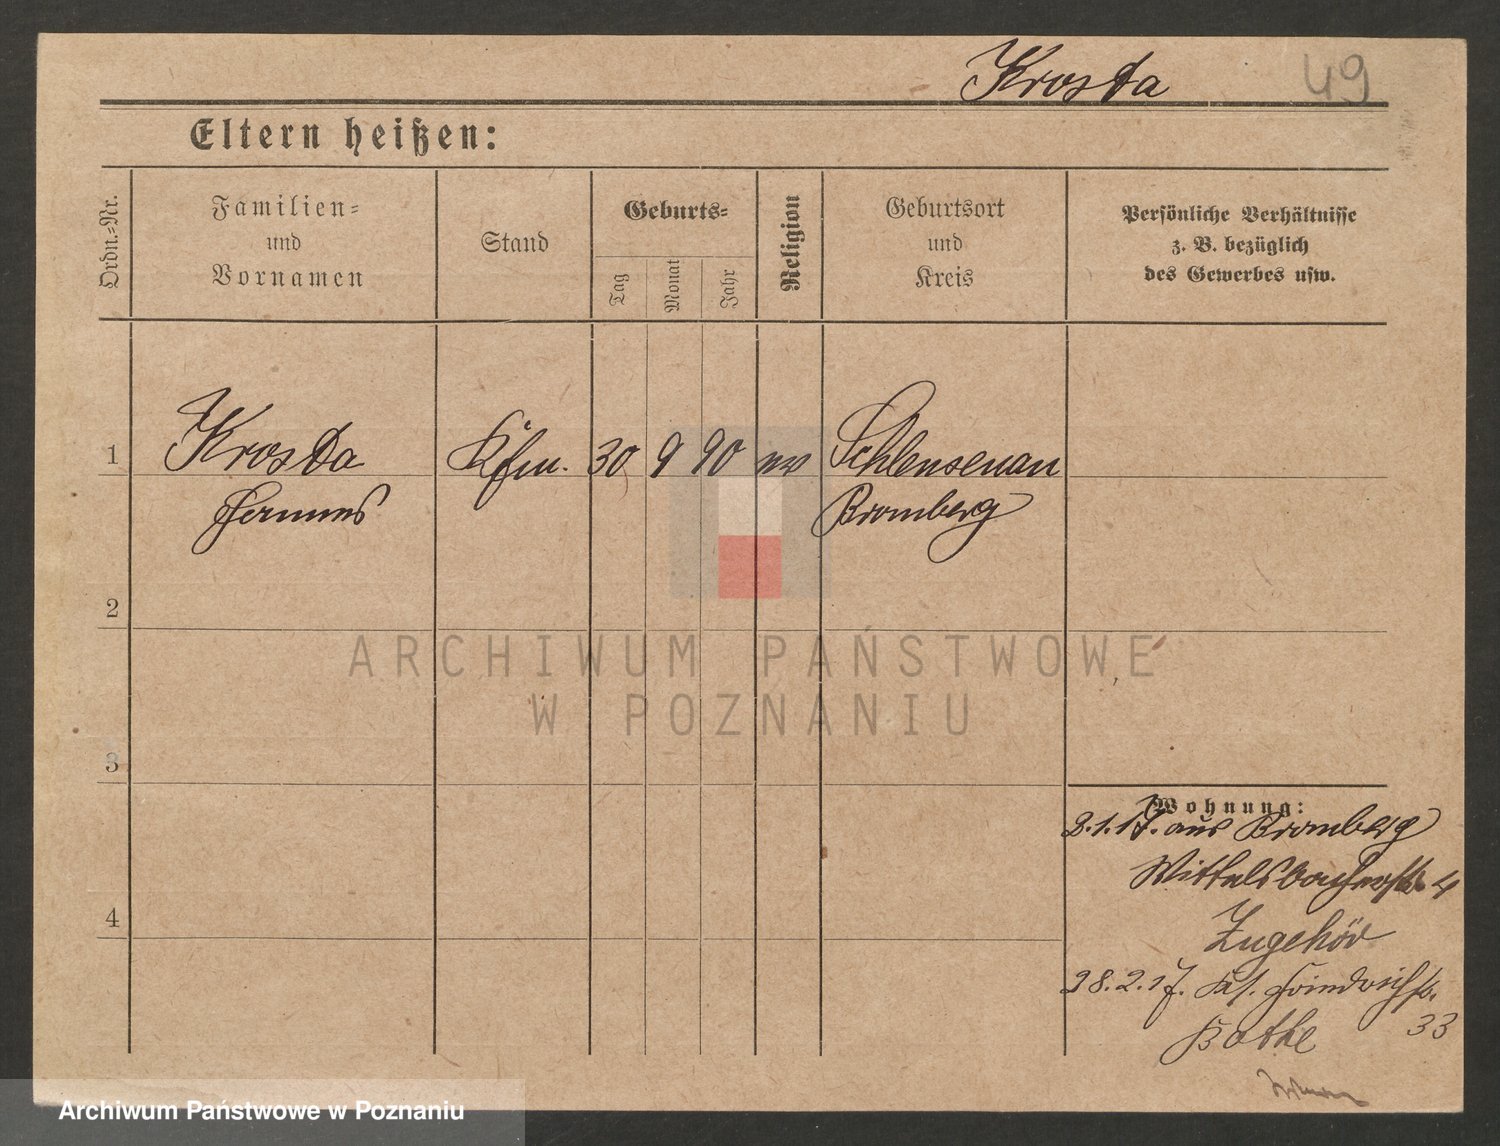 Krosta 49
Eltern heißen:
Ordn.-Nr.
Familien-
und
Vornamen
Stand
Geburts-
Tag
Monat
Jahr
Religion
Geburtsort
und
Kreis
Persönliche Verhältnisse
z. B. bezüglich
des Gewerbes usw.
1 Krosta Kfm. 30 9 90 Schleusenau
Bromberg
2
3
4
ARCHIWUM PAŃSTWOWE
W POZNANIU
Wohnung:
2.1.17. aus Bromberg
Wittelsbacherstr. 4
Zugehör
28.2.17. Friedrichstr.
33
Bothe
Archiwum Państwowe w Poznaniu